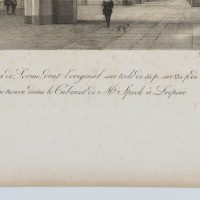 de Lorme, dont l'original sur toile de 34 p. sur 24 p. de
se trouve dans le Cabinet de Mr. Speck à Leipsic